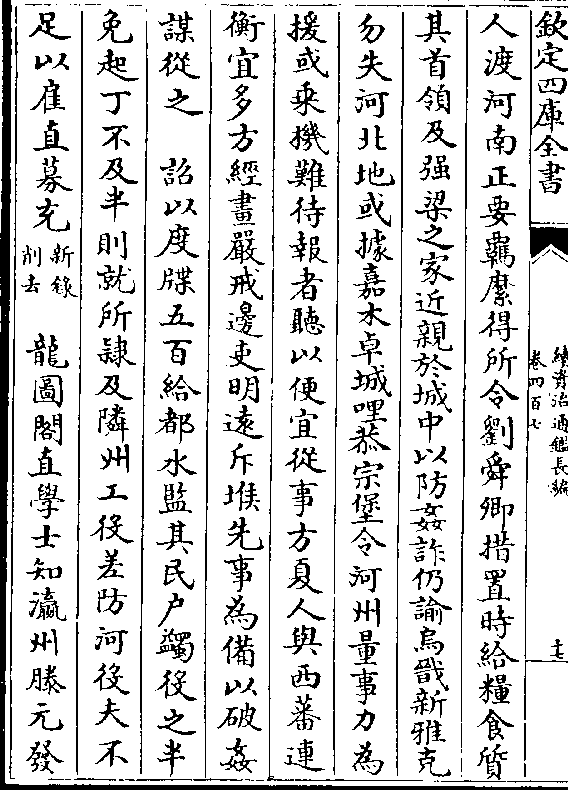 欽定四庫全書
續資治通鑑長編
卷四百七
十七
人渡河南正要羈縻得所令劉舜卿措置時給糧食質
其首領及强梁之家近親於城中以防姦詐仍諭烏戩新雅克
勿失河北地或據嘉木卓城哩恭宗堡令河州量事力為
援或乘機難待報者聽以便宜從事方夏人與西蕃連
衡宜多方經畫嚴戒邊吏明遠斥堠先事為備以破姦
謀從之 詔以度牒五百給都水監其民户蠲役之半
免起丁不及半則就所隷及隣州工役差防河役夫不
足以雇直募充新錄削去 龍圖閣直學士知瀛州滕元發